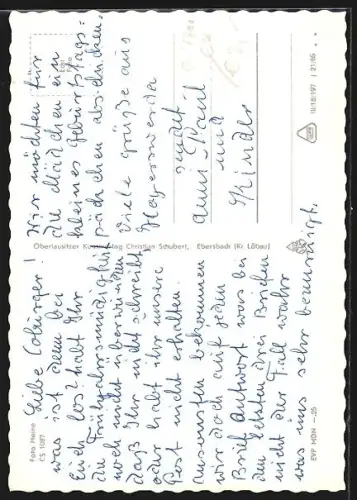 Liebe Coburger!
was ist denn bei
Euch los? habt Ihr
die Frühjahrsmüdigkeit
noch nicht überwunden
daß Ihr nicht schreibt,
oder habt ihr unsere
Post nicht erhalten.
ansonsten bekommen
wir doch auf jeden
Brief Antwort was bei
den letzten drei Briefen
nicht der Fall wahr
was uns sehr beunruhigt.
Wir möchten für
die Mädchen ein
kleines Geburtstags=
päckchen abschicken.
Viele grüße aus
Hoyerswerda
sendet
Paul
und
Kinder
Foto Heine
CS 1087
Oberlausitzer Kunstverlag Christian Schubert, Ebersbach (Kr. Löbau)
EVP MDN -,25
III/18/197 J 21/65